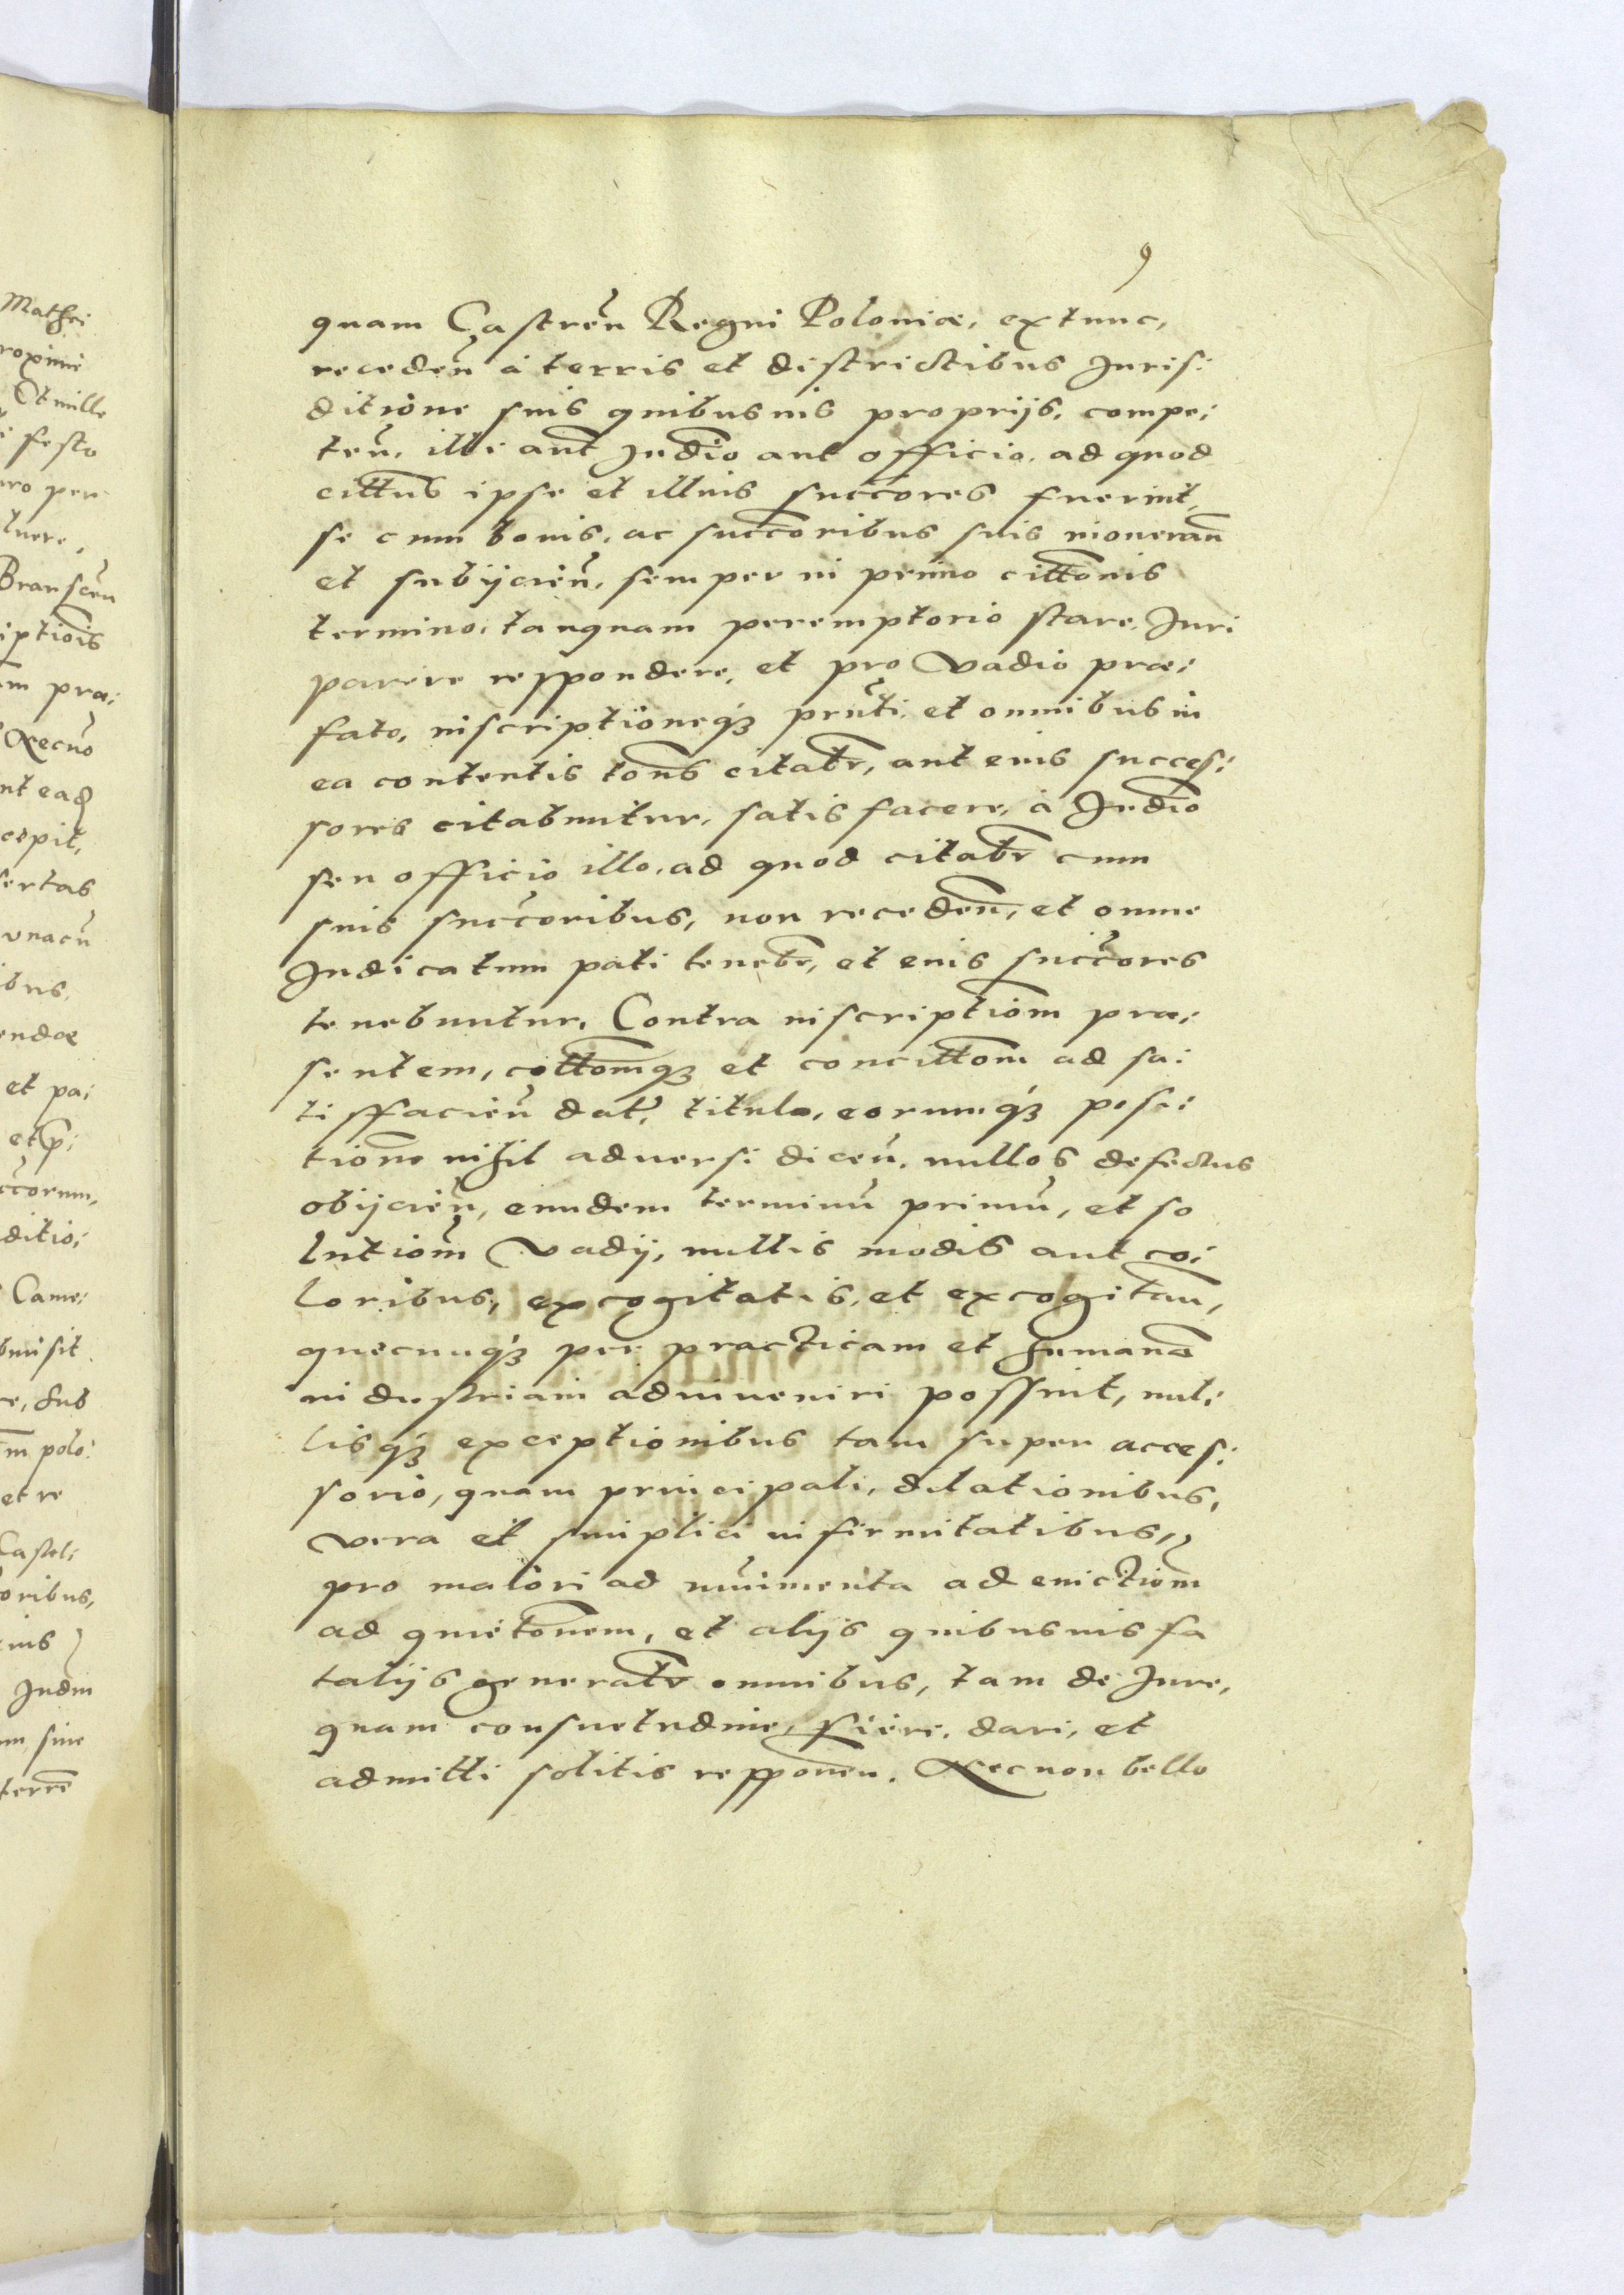 9
quam Castreñ Regni Poloniæ, extunc,
recedeñ á terris et districtibus Juris:
ditione suis quibusuis proprijs, compe:
teñ. illi aut Judīo aut officio. ad quod
cittus ipse et illius succores fuerint,
se cum bonis, ac succoribus suis inonerañ
et subijcieñ. semper in primo cittonis
termino, tanquam peremptorio stare, Juri
parere respondere, et pro Vadio præ:
fato, inscriptioneq́ȝ pñti, et omnibus in
ea contentis tońs citabr, aut eius succes:
sores citabuntur, satisfacere, á Judīo
seu officio illo, ad quod citabr cum
suis succoribus, non recedeñ, et omne
Judicatum pati tenebr, et eius succores
tenebuntur. Contra inscriptiom præ:
sentem, cittomqȝ et concittom ad sa:
tisffacieñ dat, titulo, eorumq́ȝ posi:
tione nihil aduersi diceñ. nullos defectus
obijcieñ, eundem terminū primū, et so
lutiom Vadij, nullis modis aut co:
loribus, excogitatis, et excogitañ,
quecunq́ȝ per practicam et humanā
industriam adinueniri possint, nul:
lisq́ȝ exceptionibus tam super acces:
sorio, quam principali, dilationibus,
vera et simplici infirmitatibus,
pro maiori ad munimenta ad euictiom
ad quietonem, et alijs quibusuis fa
talijs generalr omnibus, tam de Jure,
quam consuetudine, fieri, dari, et
admitti solitis repponen. Necnon bello
Mathei
roximi
Et mille
festo
ro per
tuere,
Branscen
iptiois
m præ:
Necnō
nt ead
cepit,
sertas
vnacū
ibus,
endæ
et pa:
ccorum,
ditio:
Came:
bmisit
re, sub
m polo:
et re
Castel:
oribus,
uis
Judm
m, siue
terre